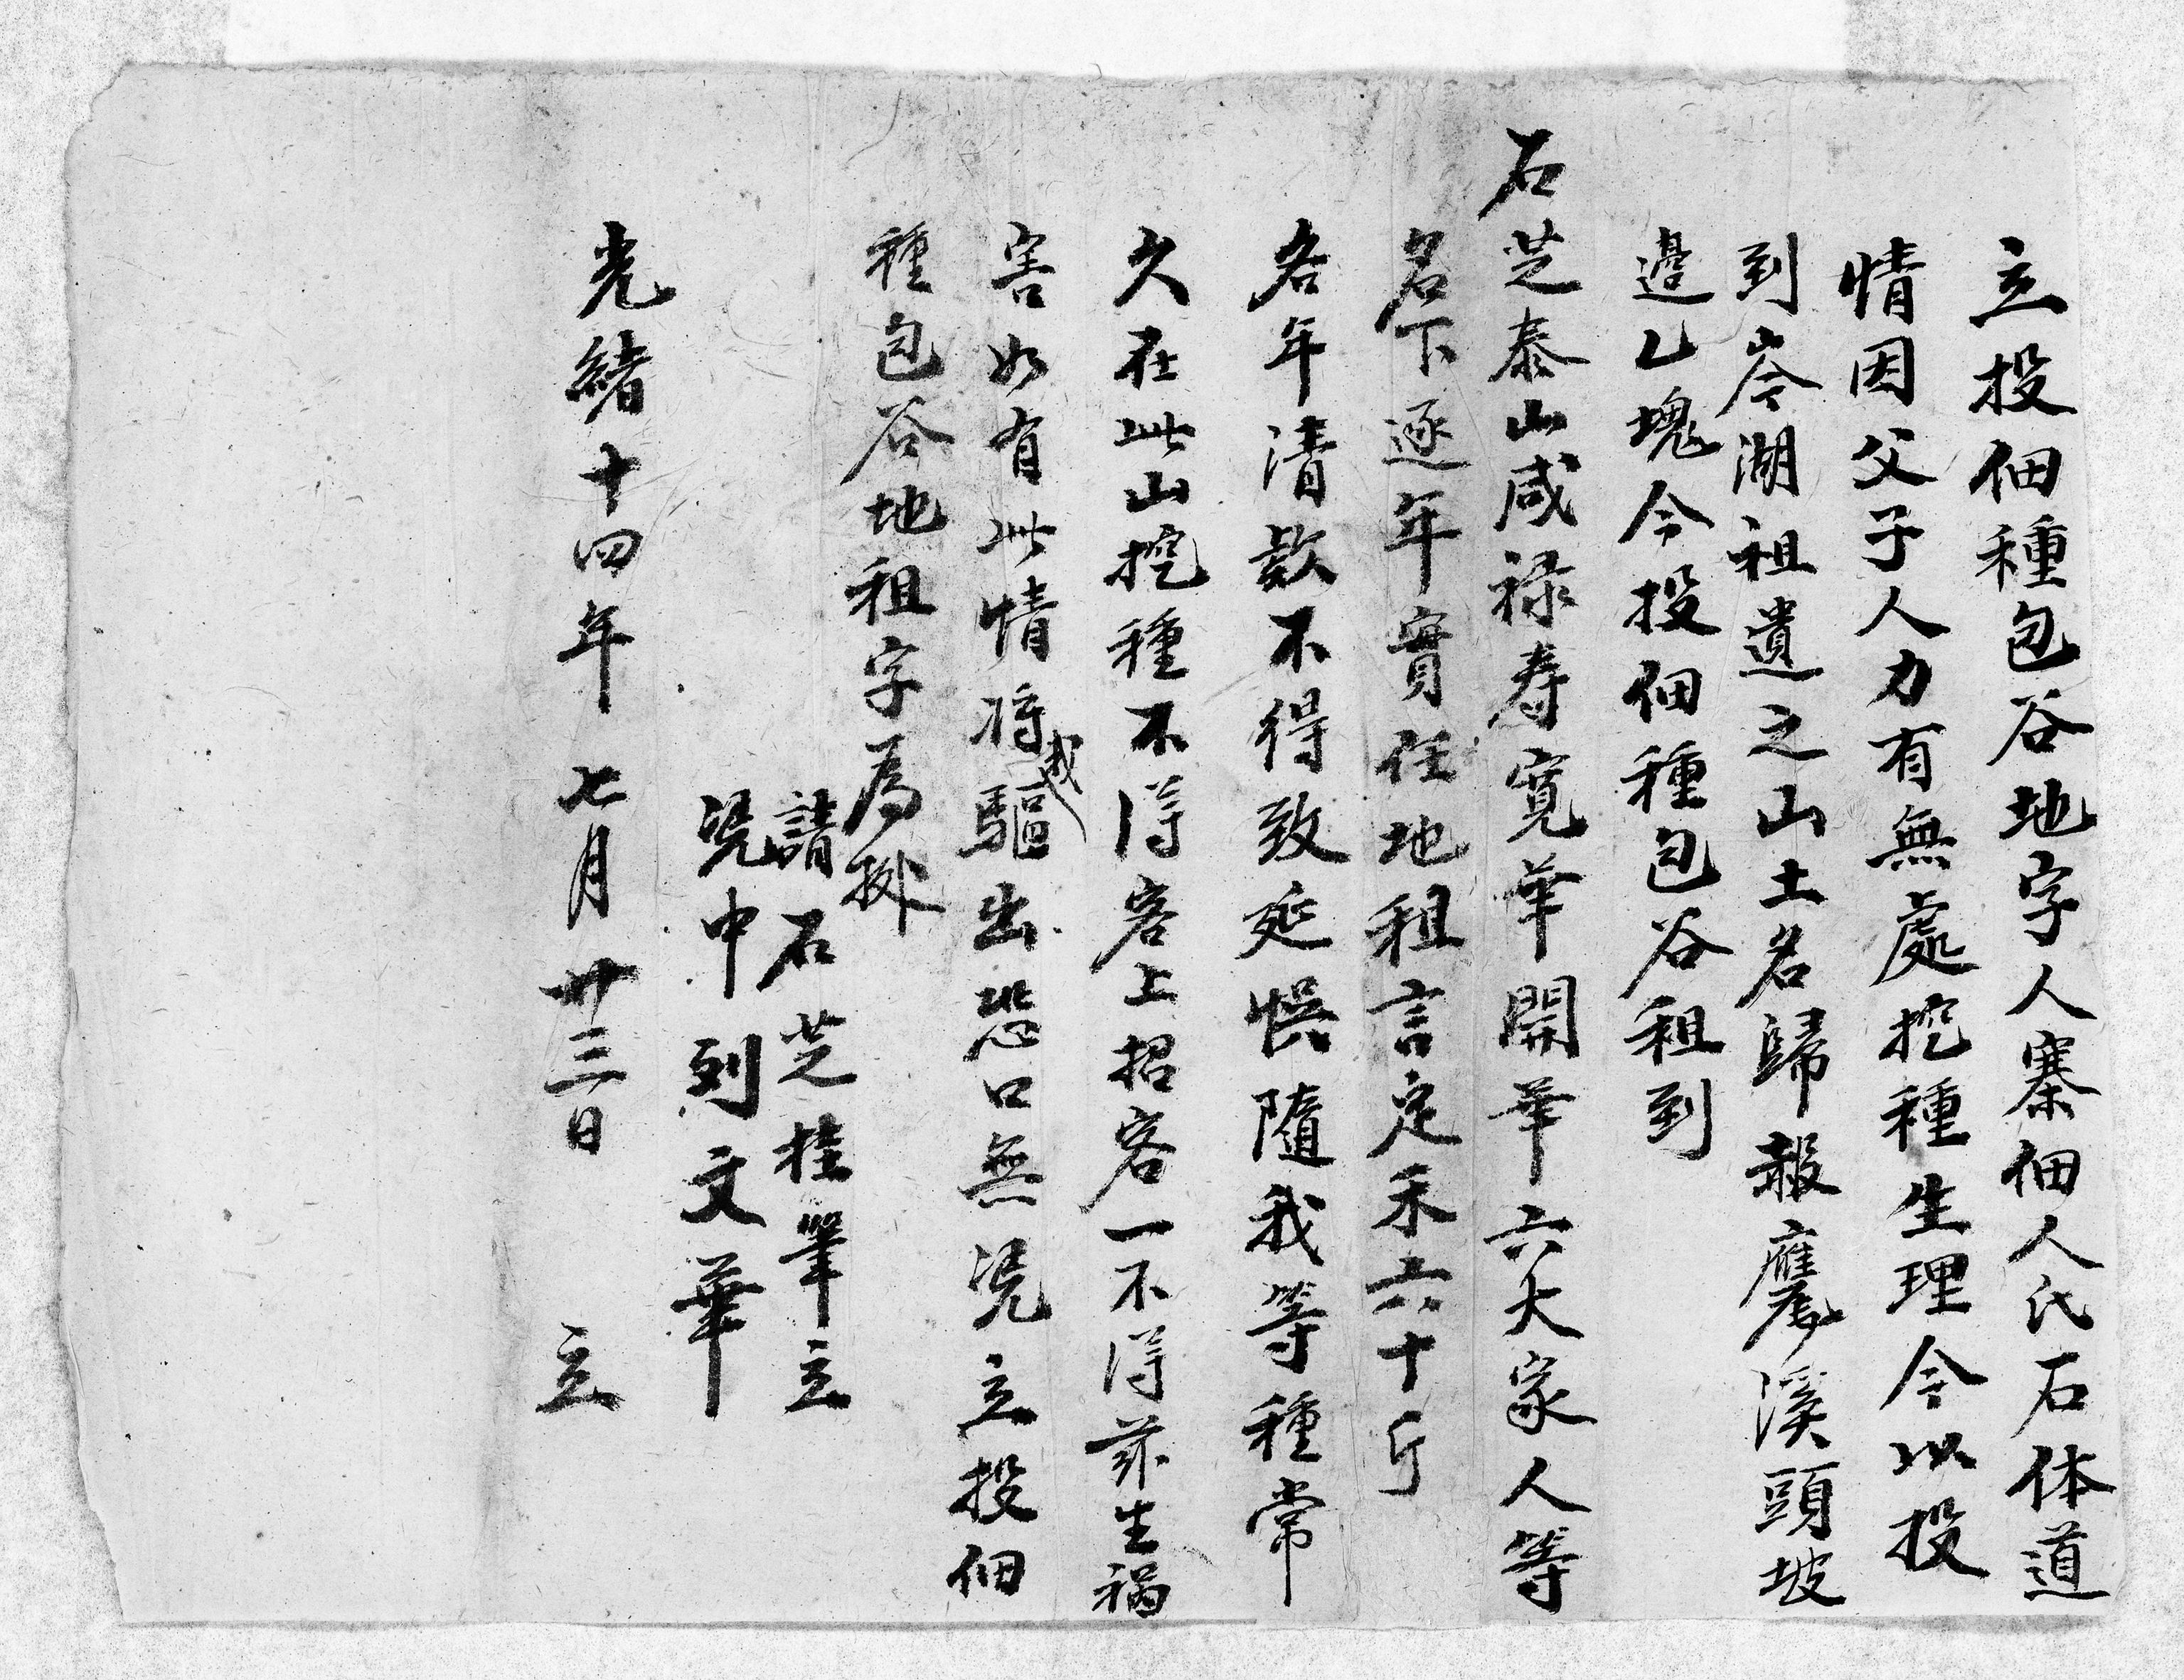 立投佃種包谷地字人寨佃人氏石体道
情因父子人力有無處挖種生理今以投
到岑湖祖遺之山土名歸報應溪頭坡
邊乙塊今投佃種包谷租到
石芝泰山咸禄寿寬華開華六大家人等
名下逐年實任地租言定禾六十斤
各年清款不得致延悞隨我等種常
久在此山挖種不得客上招客一不得兹生禍
害如有此情将我驅出恐口無凭立投佃
種包谷地租字為據
請石芝桂筆立
凭中列文華
光緒十四年七月廿三日 立